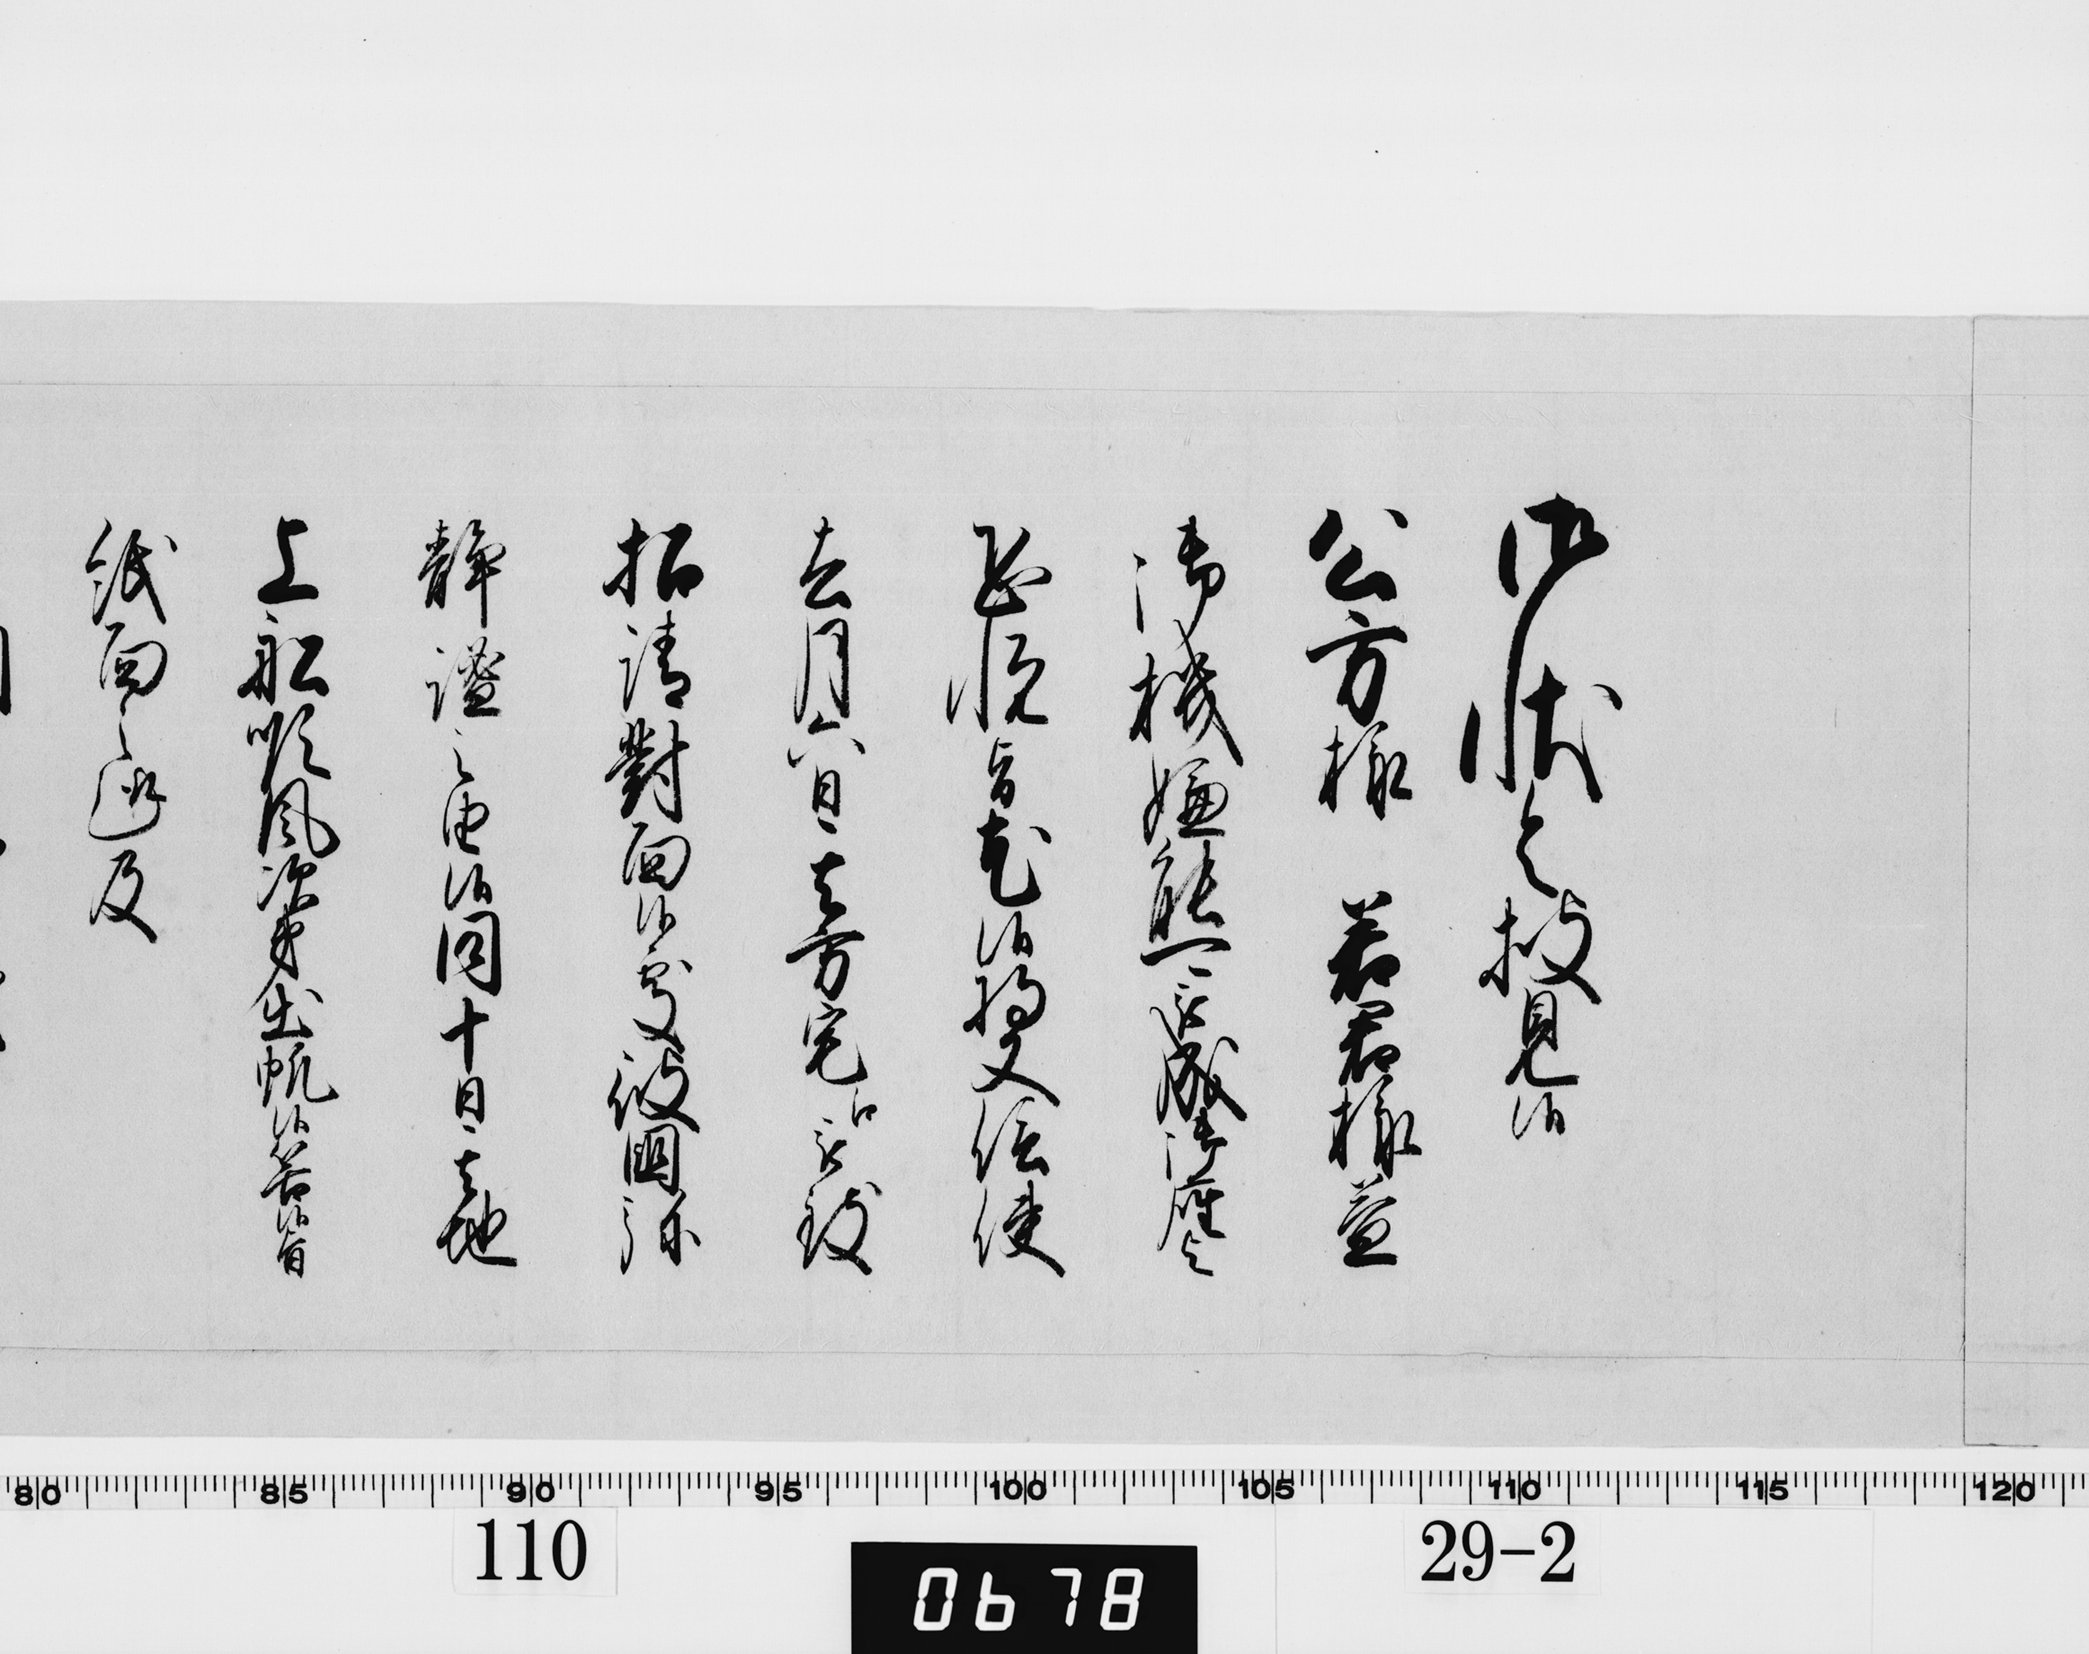 御状令披見候
公方様 若君様益
御機嫌能被成御座
恐悦旨尤候将又信使
去月六日其方宅江被致
招請對面候処彼国弥
静謐之由候同十日其地
上船順風次第出帆候筈候旨
紙面之趣及
80 85 90 95 100 105 110 115 120
110 29-2
0678